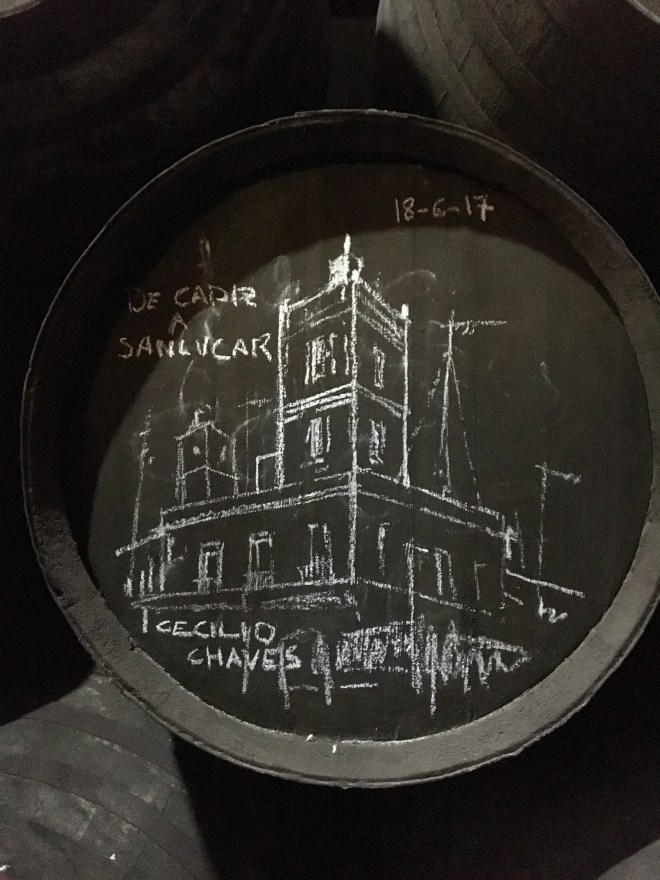 18-6-17
DE CADIZ
A
SANLUCAR
CECILIO
CHAVES